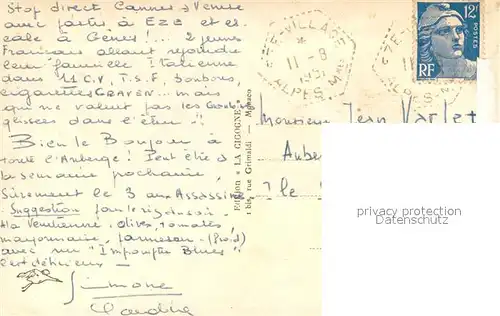 Stop direct Cannes à Venise
avec pointe à EZE et es
cale à Gênes! ... 2 jeunes
Français allant rejoindre
leur famille Italienne
dans 11 C.V, T.S.F, bonbons,
cigarettes CRAVEN ... mais
qui ne valent pas les
glissées dans l'étui !!
Bien le Bonjour à
toute l'Auberge! Peut être à
la semaine prochaine,
Sûrement le 3 aux Assassins
Suggestion
à la Vénitienne : olives, tomates,
mayonnaise, parmesan
avec un "Impromptu Blues"
c'est délicieux
Simone
EZE-VILLAGE
11-8
1951
ALPES Mmes
EZE-
11
ALPES
12F
POSTES
RF
Edition « LA CIGOGNE »
1 bis, rue Grimaldi - Monaco
Monsieur Jean Varlet
Aube
7 le
property watermark
Datenschutz